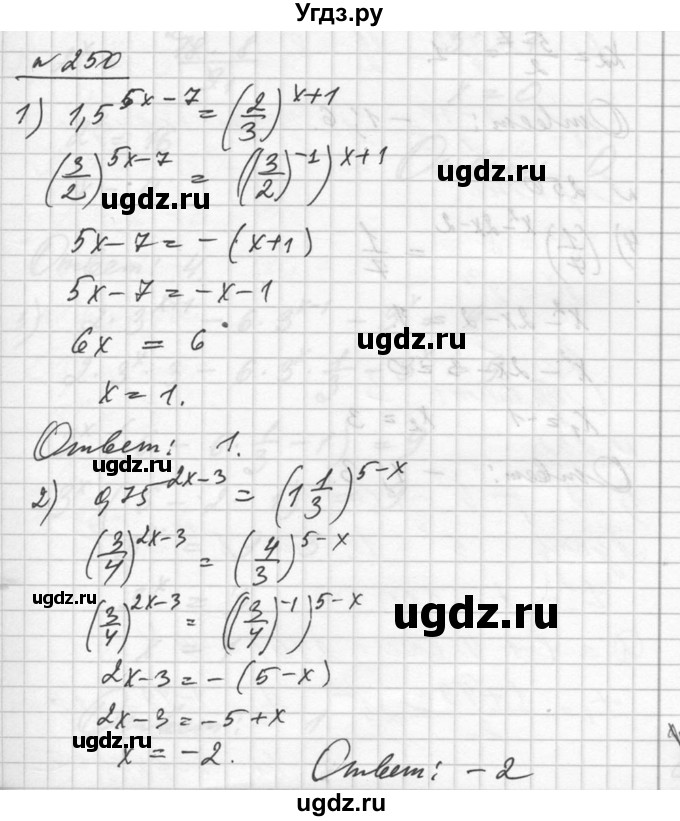 Угдз.ру
№ 250
1) 1,5^{5x-7} = (2/3)^{x+1}
(3/2)^{5x-7} = ((3/2)^{-1})^{x+1}
ugdz.ru ugdz.ru
5x-7 = -(x+1)
5x-7 = -x-1
6x = 6
ugdz.ru ugdz.ru
x = 1.
Ответ: 1.
ugdz.ru
2) 0,75^{2x-3} = (1 1/3)^{5-x}
(3/4)^{2x-3} = (4/3)^{5-x}
ugdz.ru
(3/4)^{2x-3} = ((3/4)^{-1})^{5-x}
ugdz.ru
2x-3 = -(5-x)
2x-3 = -5+x
ugdz.ru
x = -2.
Ответ: -2
ugdz.ru
ugdz.ru